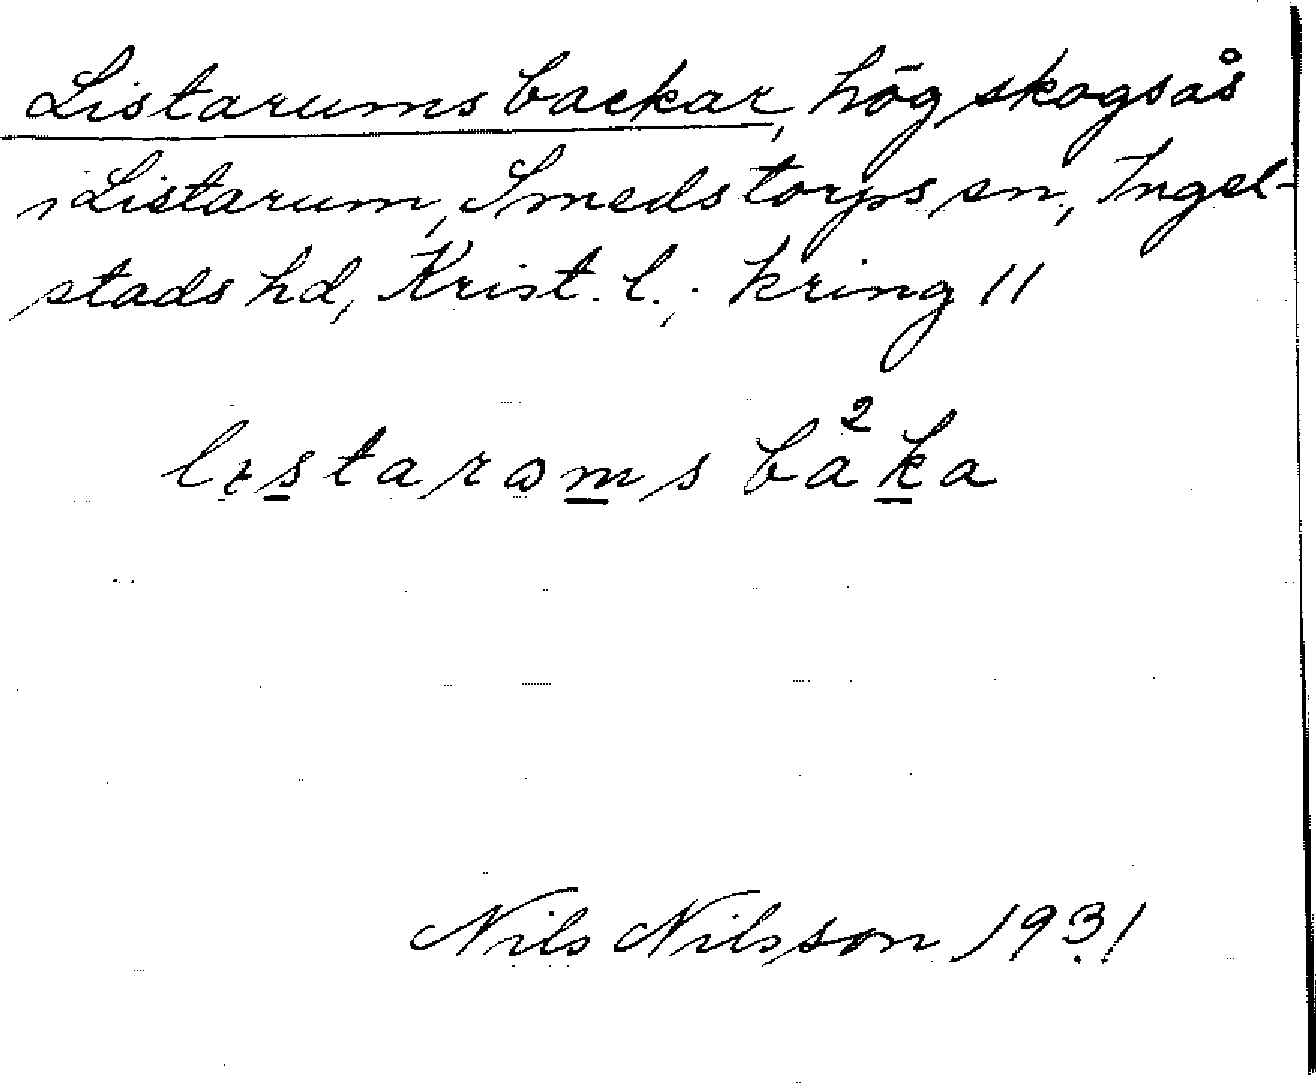 Listarums backar, hög skogsås
i Listarum, Smedstorps sn, Ingel-
stads hd, Krist. l.; kring 11
lıstarɷms bà²ka
Nils Nilsson 1931